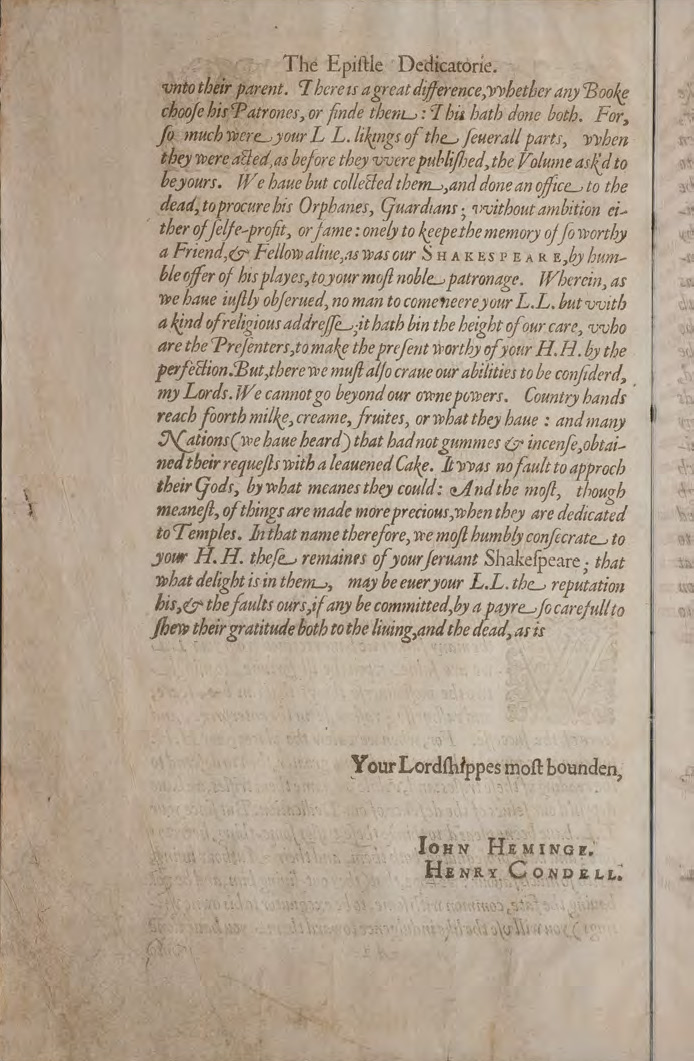 The Epiſtle Dedicatorie.
vnto their parent. There is a great difference, vvhether any Booke
chooſe his Patrones, or finde them: This hath done both. For,
ſo much were your L L. likings of the ſeuerall parts, vvhen
they were acted, as before they vvere publiſhed, the Volume ask'd to
be yours. We haue but collected them, and done an office to the
dead, to procure his Orphanes, Guardians; vvithout ambition ei-
ther of ſelfe-profit, or fame: onely to keepe the memory of ſo worthy
a Friend, & Fellow aliue, as was our SHAKESPEARE, by hum-
ble offer of his playes, to your moſt noble patronage. Wherein, as
we haue iuſtly obſerued, no man to come neere your L.L. but vvith
a kind of religious addreſſe; it hath bin the height of our care, vvho
are the Preſenters, to make the preſent worthy of your H.H. by the
perfection. But, there we muſt alſo craue our abilities to be conſiderd,
my Lords. We cannot go beyond our owne powers. Country hands
reach foorth milke, creame, fruites, or what they haue : and many
Nations (we haue heard) that had not gummes & incenſe, obtai-
ned their requeſts with a leauened Cake. It vvas no fault to approch
their Gods, by what meanes they could: And the moſt, though
meaneſt, of things are made more precious, when they are dedicated
to Temples. In that name therefore, we moſt humbly conſecrate to
your H.H. theſe remaines of your ſeruant Shakeſpeare; that
what delight is in them, may be euer your L.L. the reputation
his, & the faults ours, if any be committed, by a payre ſo carefull to
ſhew their gratitude both to the liuing, and the dead, as is
Your Lordſhippes moſt bounden,
IOHN HEMINGE.
HENRY CONDELL.